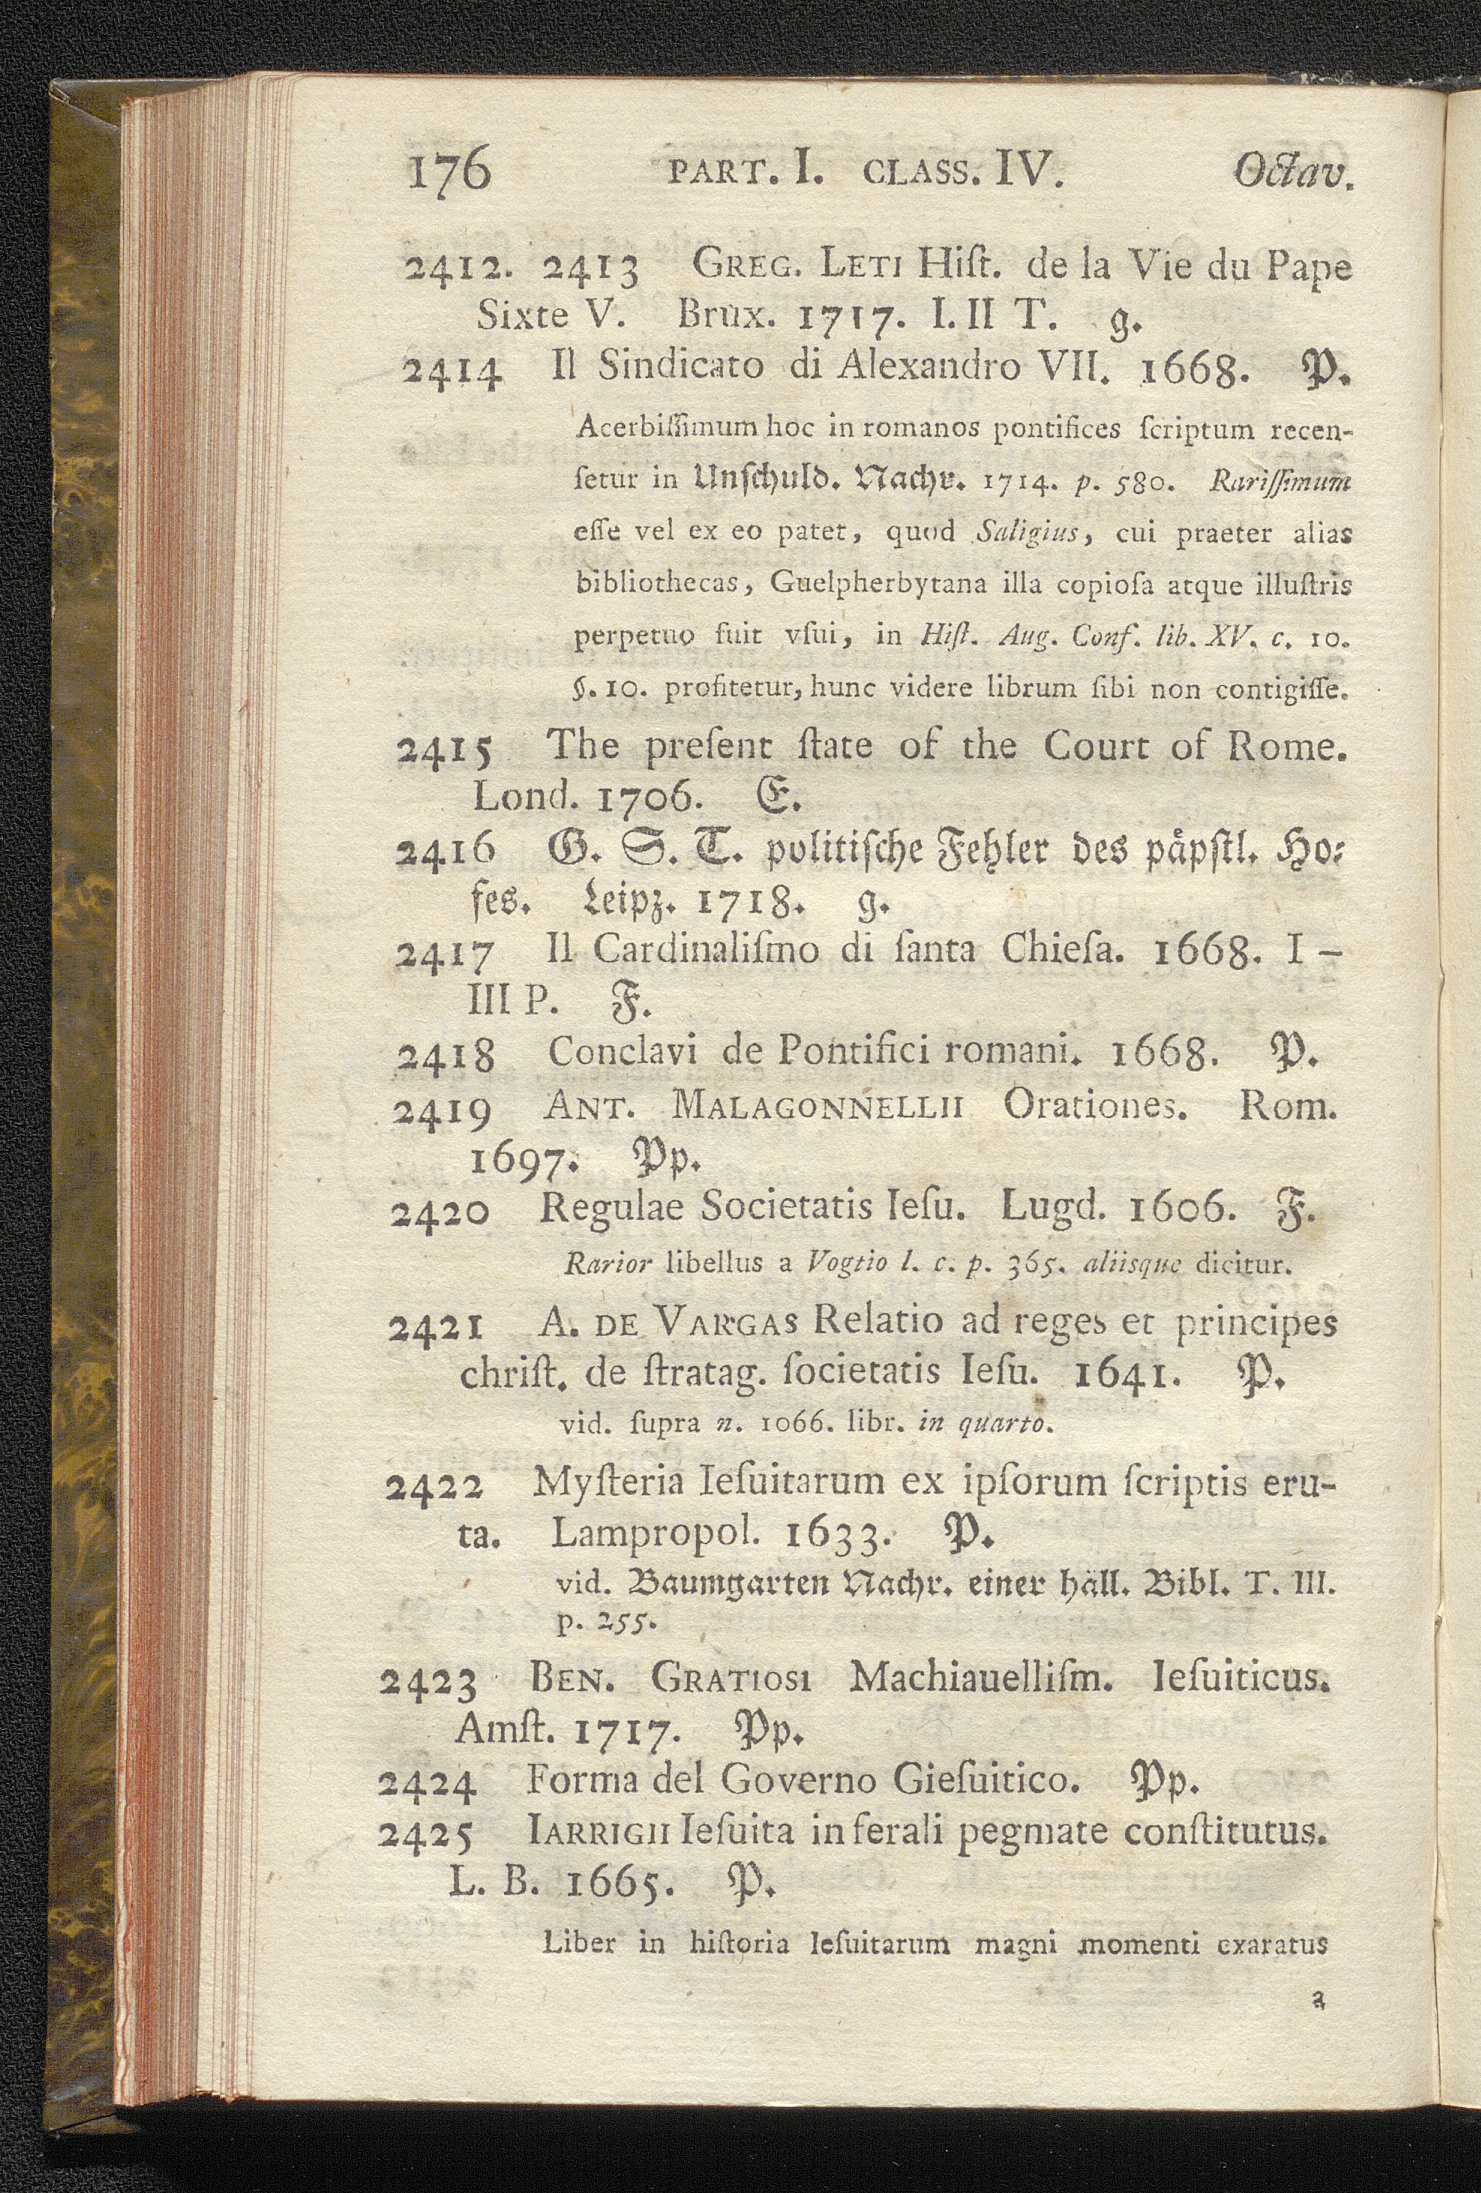 176 PART. I. CLASS. IV. Octav.
2412. 2413 GREG. LETI Hiſt. de la Vie du Pape
Sixte V. Brux. 1717. I. II T. g.
2414 Il Sindicato di Alexandro VII. 1668. P.
Acerbiſſimum hoc in romanos pontifices ſcriptum recen-
ſetur in Unſchuld. Nachr. 1714. p. 580. Rariſſimum
eſſe vel ex eo patet, quod Saligius, cui praeter alias
bibliothecas, Guelpherbytana illa copioſa atque illuſtris
perpetuo fuit vſui, in Hiſt. Aug. Conf. lib. XV. c. 10.
§. 10. profitetur, hunc videre librum ſibi non contigiſſe.
2415 The preſent ſtate of the Court of Rome.
Lond. 1706. E.
2416 G. S. T. politiſche Fehler des paͤpſtl. Ho⸗
fes. Leipz. 1718. g.
2417 Il Cardinaliſmo di ſanta Chieſa. 1668. I –
III P. F.
2418 Conclavi de Pontifici romani. 1668. P.
2419 ANT. MALAGONNELLII Orationes. Rom.
1697. Pp.
2420 Regulae Societatis Ieſu. Lugd. 1606. F.
Rarior libellus a Vogtio l. c. p. 365. aliisque dicitur.
2421 A. DE VARGAS Relatio ad reges et principes
chriſt. de ſtratag. ſocietatis Ieſu. 1641. P.
vid. ſupra n. 1066. libr. in quarto.
2422 Myſteria Ieſuitarum ex ipſorum ſcriptis eru-
ta. Lampropol. 1633. P.
vid. Baumgarten Nachr. einer haͤll. Bibl. T. III.
p. 255.
2423 BEN. GRATIOSI Machiauelliſm. Ieſuiticus.
Amſt. 1717. Pp.
2424 Forma del Governo Gieſuitico. Pp.
2425 IARRIGII Ieſuita in ferali pegmate conſtitutus.
L. B. 1665. P.
Liber in hiſtoria Ieſuitarum magni momenti exaratus
a